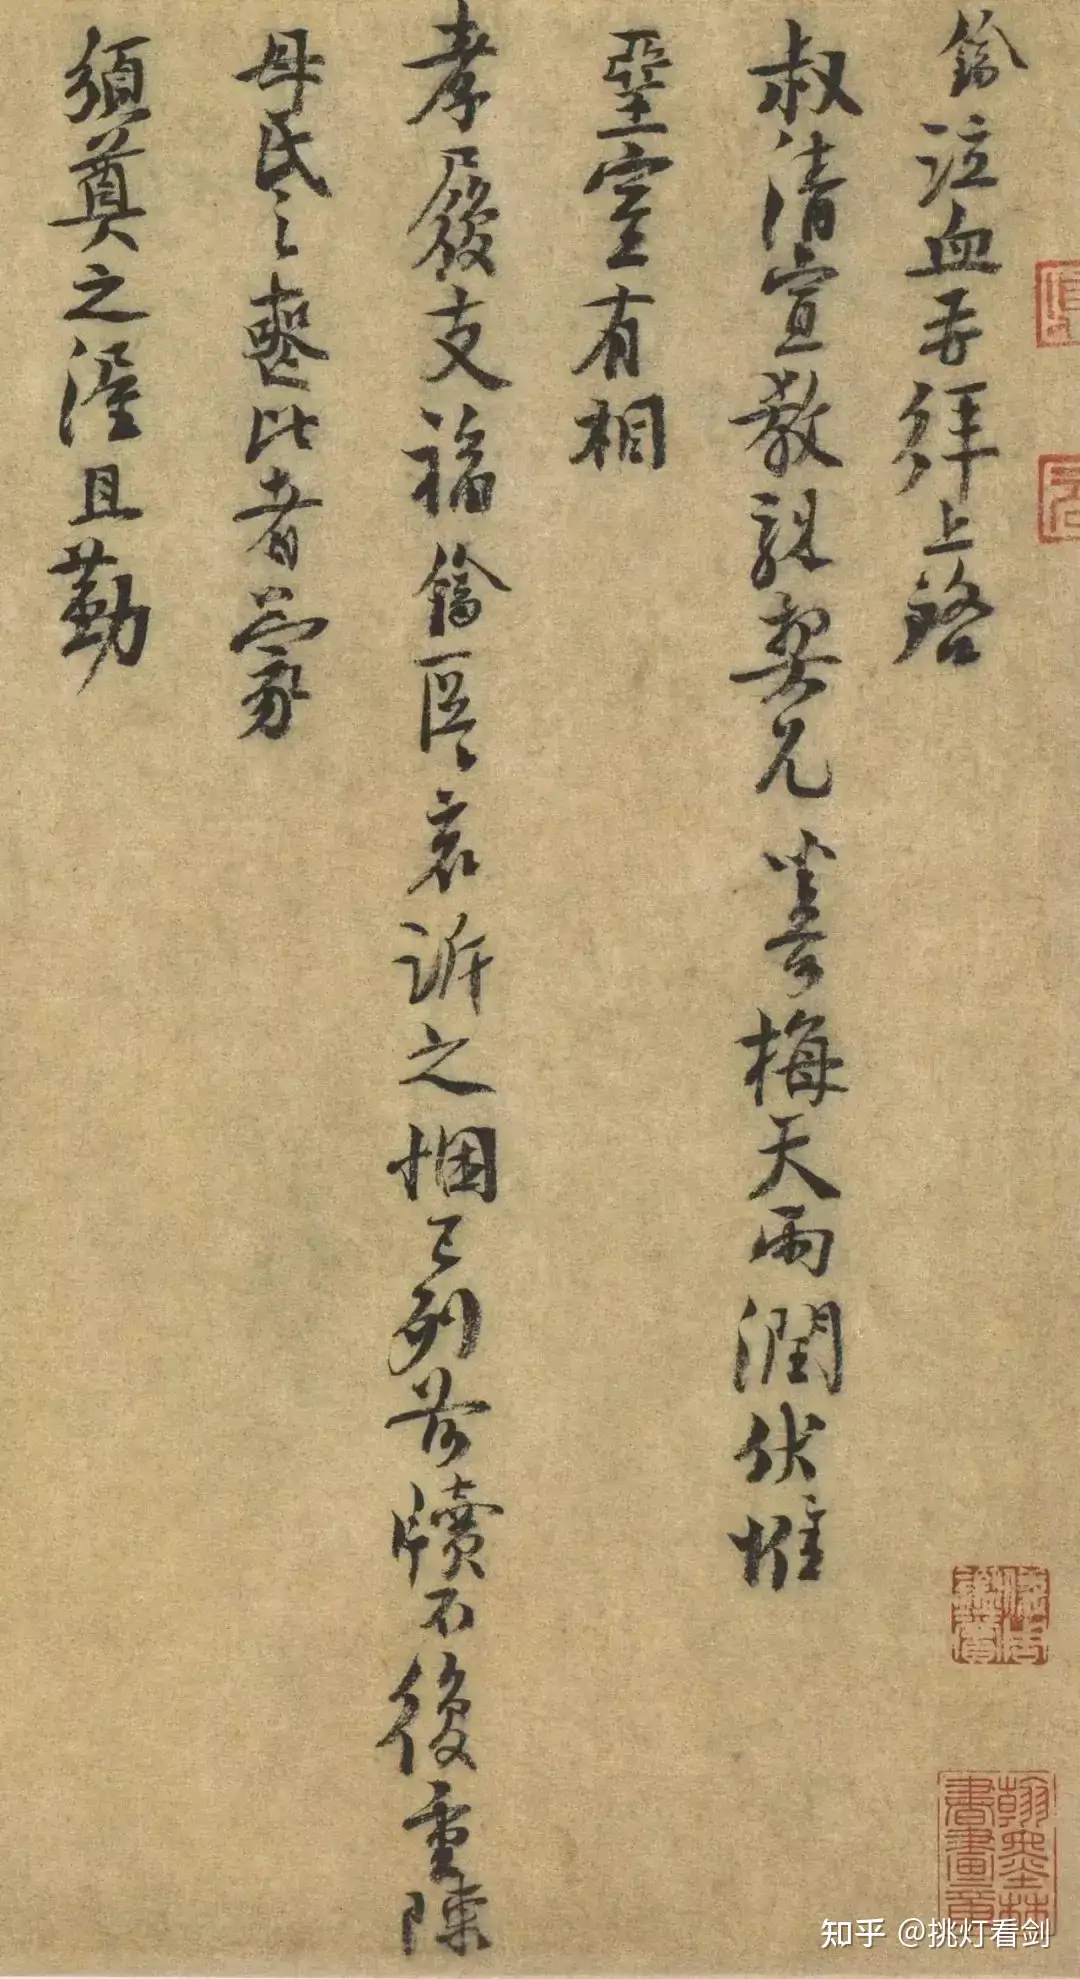 泣血再拜上啓
叔清宣教親契兄苫前梅天雨潤伏惟
堊室有相
孝履支福區區哀訴之悃已列前牘不復重陳
母氏之喪比者蒙
須奠之渥且勤
翰墨林書畫章
知乎 @挑灯看剑